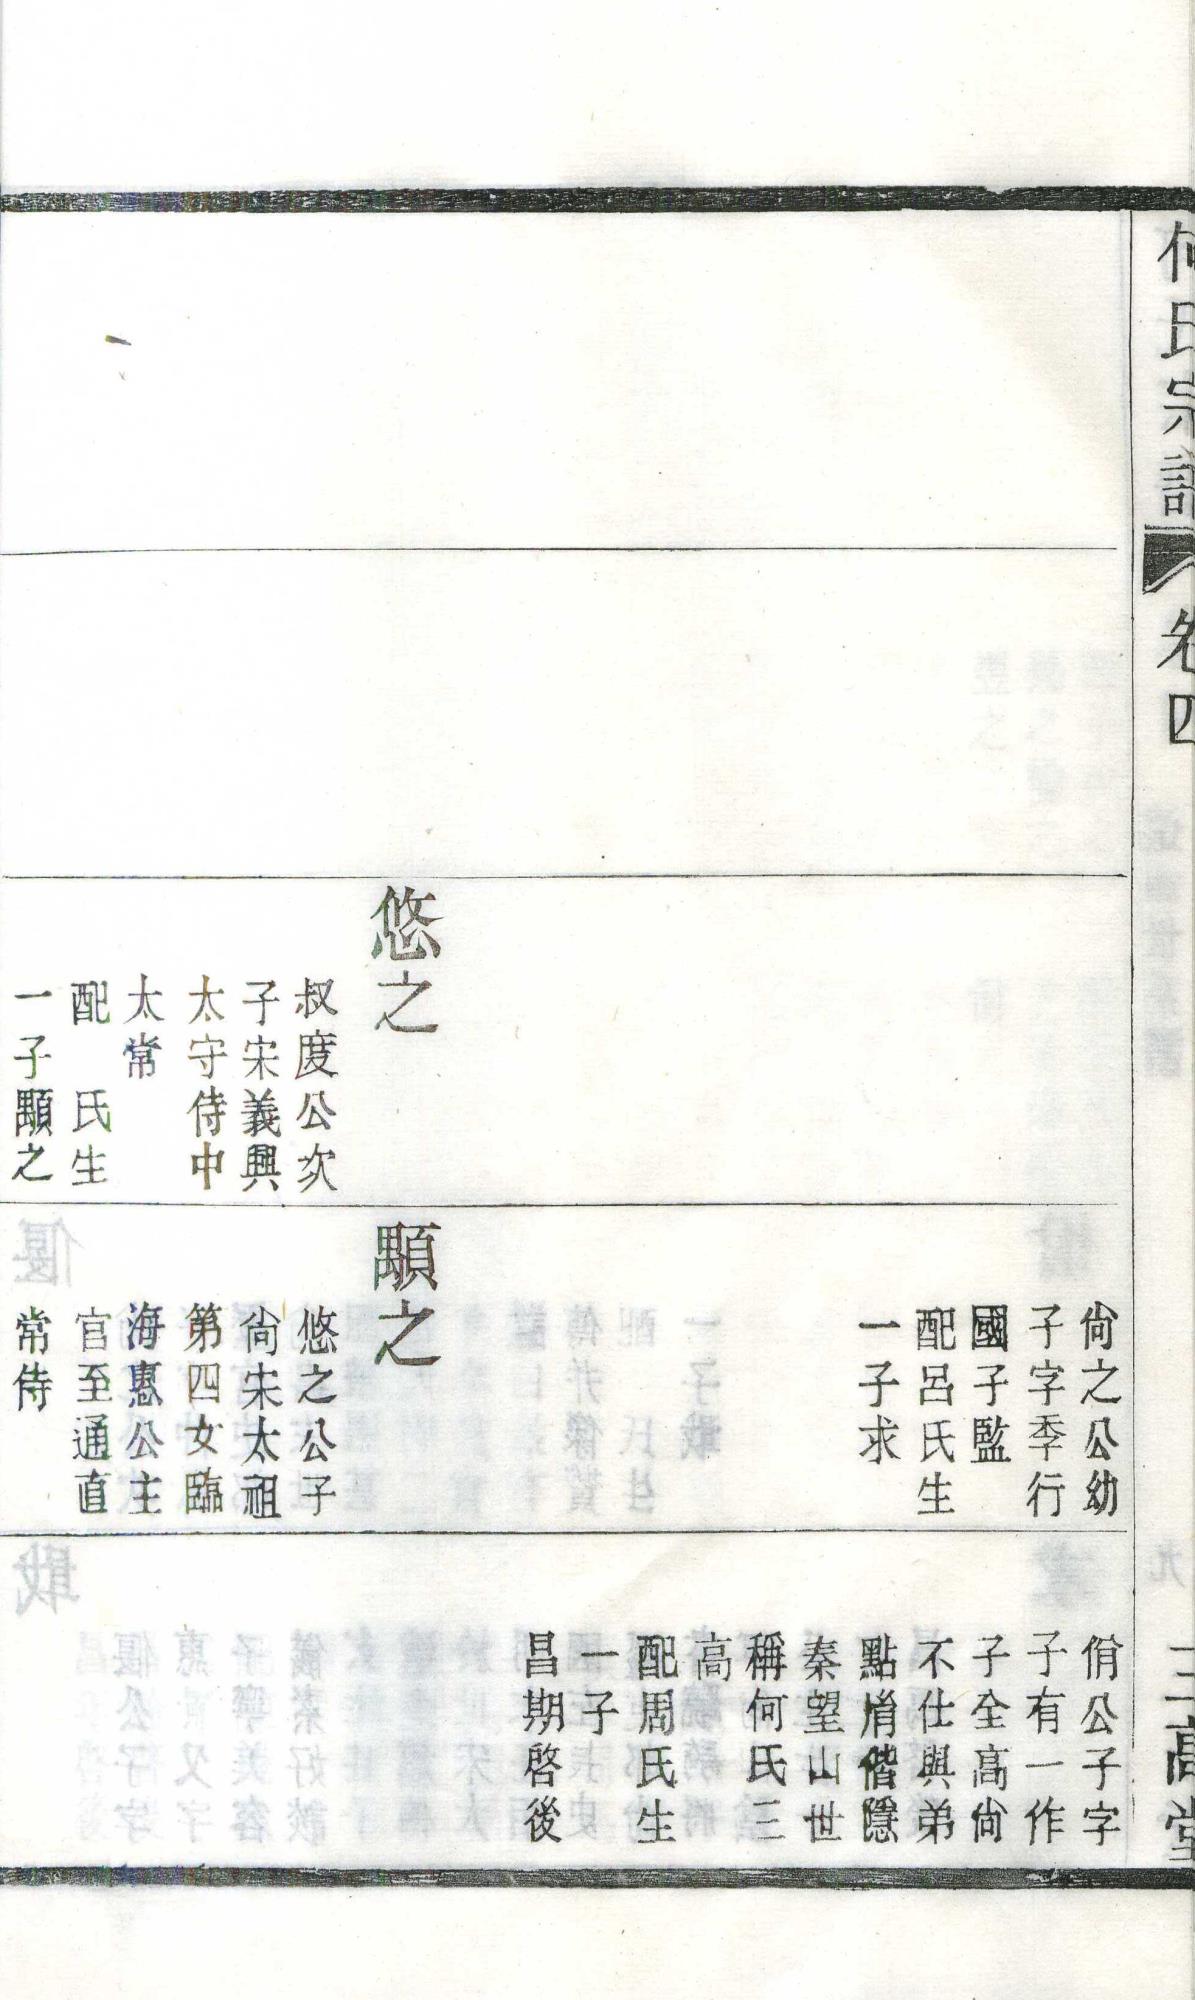 何氏宗譜
卷四
三高堂
悠之
叔度公次
子宋義興
太守侍中
太常
配　氏生
一子顒之
尙之公幼
子字季行
國子監
配呂氏生
一子求
顒之
悠之公子
尙宋太祖
第四女臨
海惠公主
官至通直
常侍
佾公子字
子有一作
子全高尙
不仕與弟
點㣲偕隱
秦望山世
稱何氏三
高
配周氏生
一子
昌期啓後